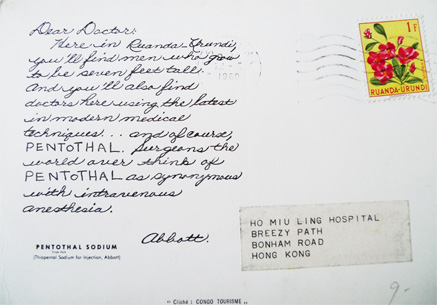 Dear Doctor:
Here in Ruanda-Urundi,
you'll find men who grow
to be seven feet tall.
And you'll also find
doctors here using the latest
in modern medical
techniques... and of course,
PENTOTHAL. Surgeons the
world over think of
PENTOTHAL as synonymous
with intravenous
anesthesia.
Abbott.
PENTOTHAL SODIUM
(Thiopental Sodium for Injection, Abbott)
1960
1F
RUANDA-URUNDI
HO MIU LING HOSPITAL
BREEZY PATH
BONHAM ROAD
HONG KONG
" Cliché : CONGO TOURISME "
9-